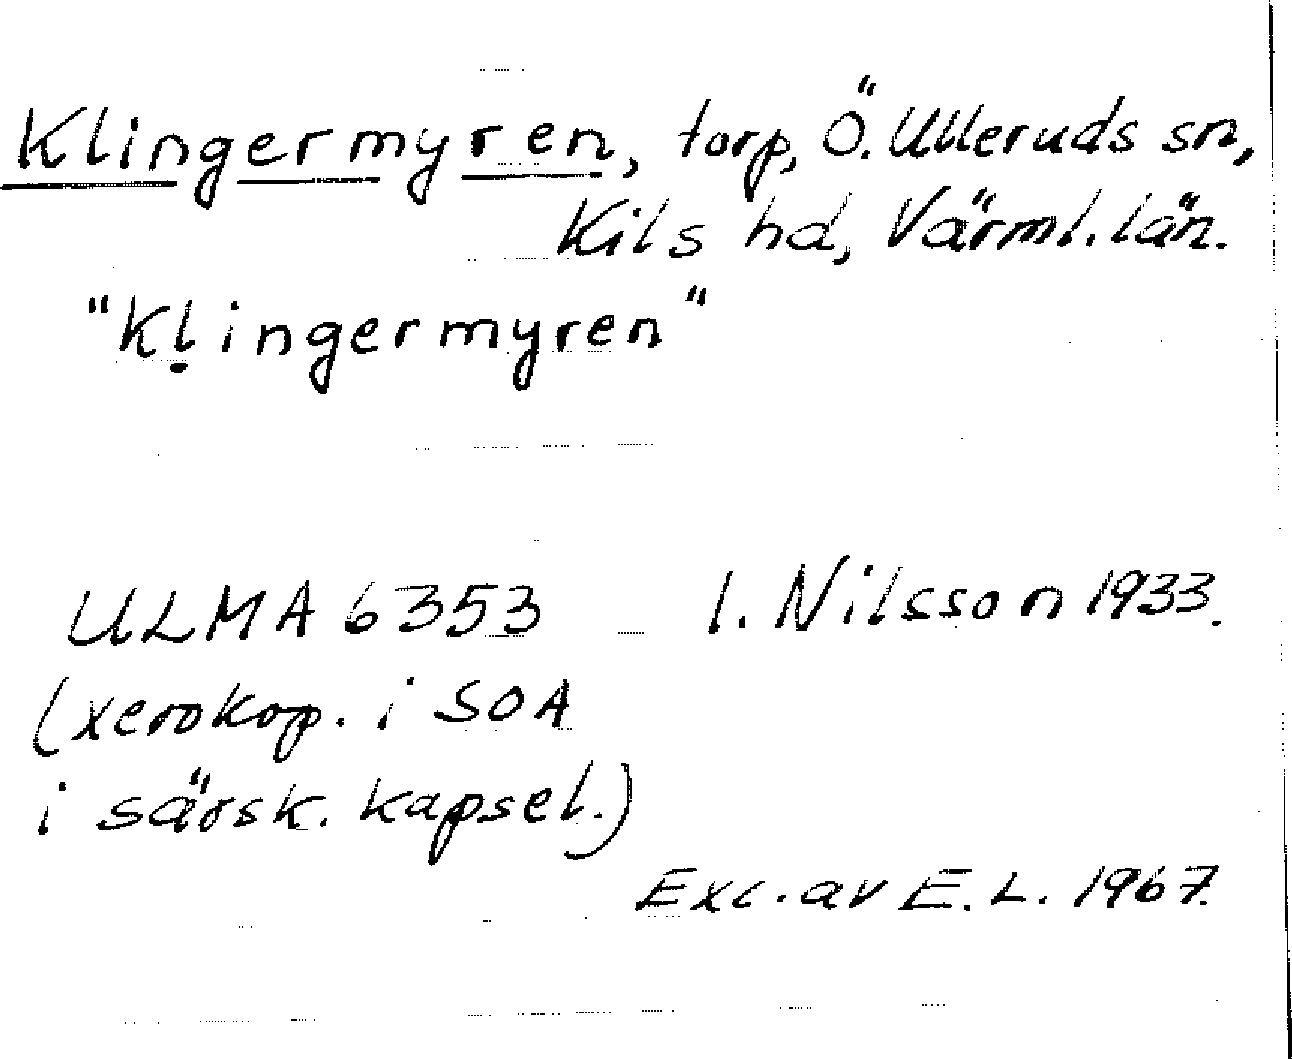 Klingermyren, torp, Ö. Ulleruds sn,
Kils hd, Värml. län.
"Kḷingermyren"
ULMA 6353 I. Nilsson 1933.
(xerokop. i SOA
i särsk. kapsel.)
Exc. av E. L. 1967.